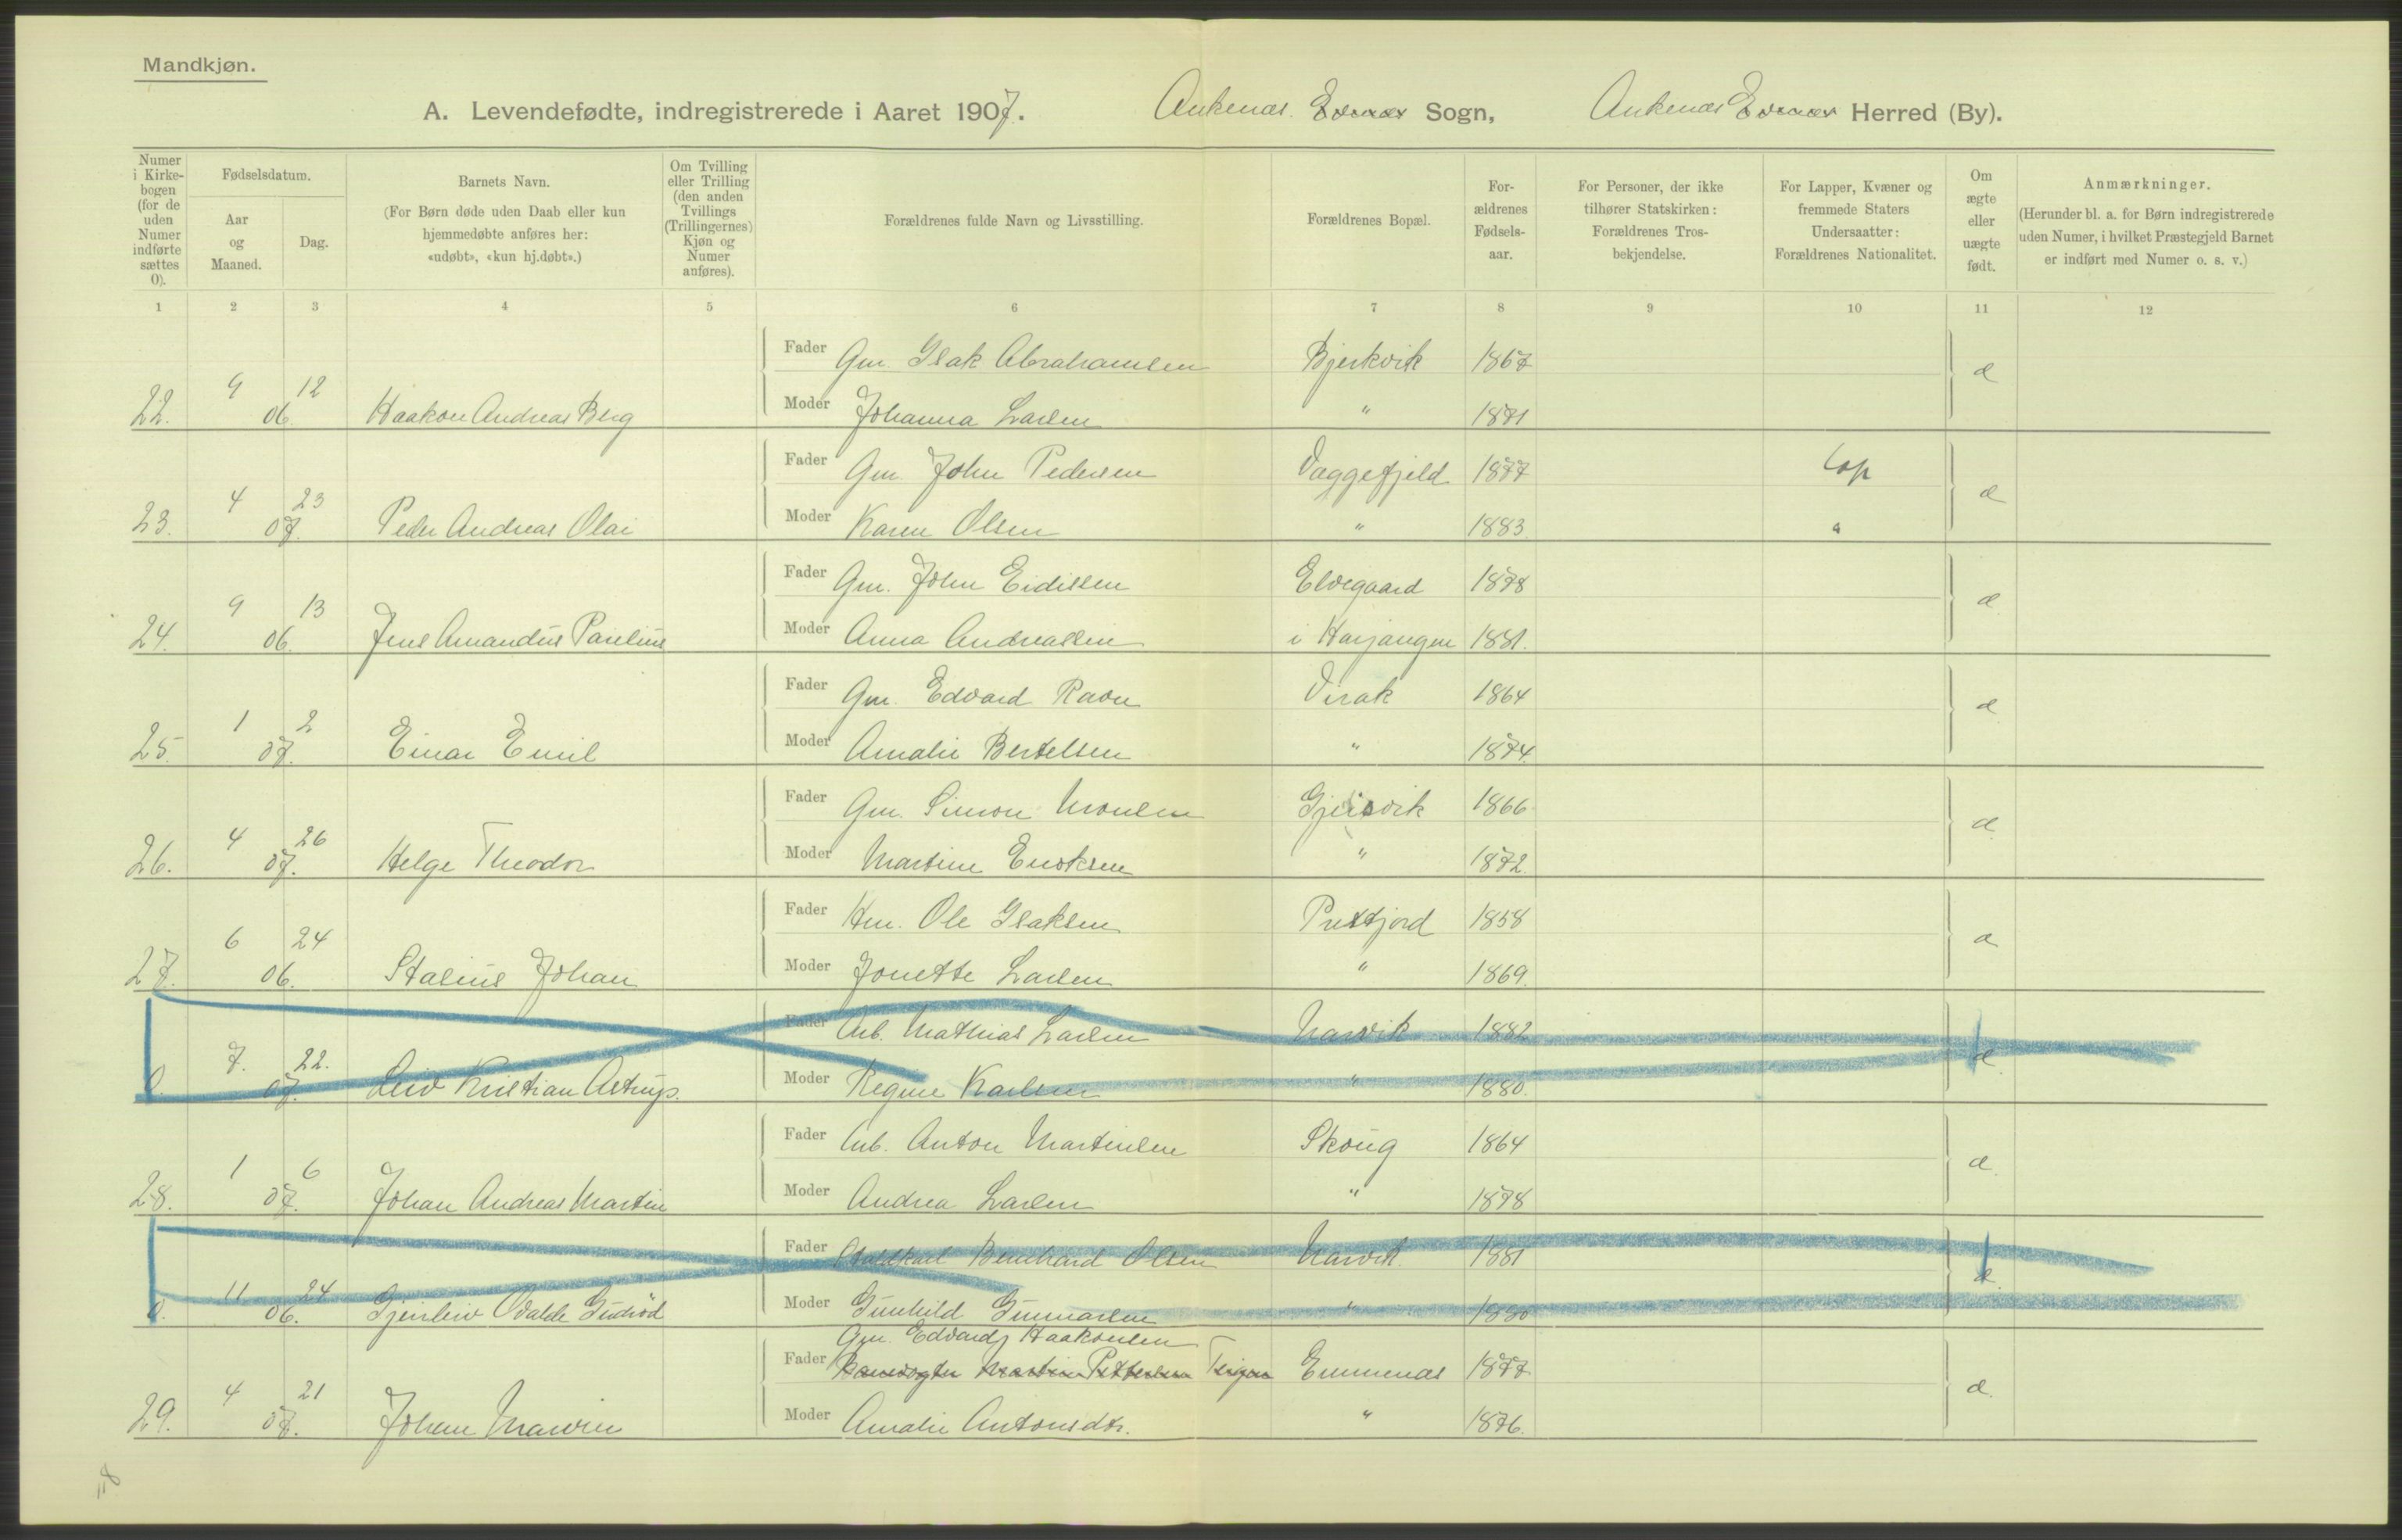 Mandkjøn.
A. Levendefødte, indregistrerede i Aaret 1907. Ankenæs. Sogn, Ankenæs Herred (By).
Numer i Kirkebogen (for de uden Numer indførte sættes 0).
Fødselsdatum.
Aar og Maaned.
Dag.
Barnets Navn.
(For Børn døde uden Daab eller kun hjemmedøbte anføres her: «udøbt», «kun hj.døbt».)
Om Tvilling eller Trilling (den anden Tvillings (Trillingernes) Kjøn og Numer anføres).
Forældrenes fulde Navn og Livsstilling.
Forældrenes Bopæl.
For-ældrenes Fødsels-aar.
For Personer, der ikke tilhører Statskirken: Forældrenes Tros-bekjendelse.
For Lapper, Kvæner og fremmede Staters Undersaatter: Forældrenes Nationalitet.
Om ægte eller uægte født.
Anmærkninger.
(Herunder bl. a. for Børn indregistrerede uden Numer, i hvilket Præstegjeld Barnet er indført med Numer o. s. v.)
1 2 3 4 5 6 7 8 9 10 11 12
Fader Gm. Isak Abrahamsen Bjerkvik 1867 æ
22. 9 06. 12 Haakon Andreas Berg Moder Johanna Larsen " 1871
Fader Gm. John Pedersen Vaggefjeld 1877 Lap æ
23. 4 07. 23 Peder Andreas Olai Moder Karen Olsen " 1883 "
Fader Gm. John Eidissen Elvegaard 1878 æ
24. 9 06. 13 Jens Amandus Paulius Moder Anna Andreassen i Harjangen 1881.
Fader Gm. Edvard Ravn Virak 1864 æ
25. 1 07. 2 Einar Emil Moder Amalie Bertelsen " 1874.
Fader Gm. Simon Monsen Gjeisvik 1866 æ
26. 4 07. 26 Helge Theodor Moder Martine Enoksen " 1872.
Fader Hm. Ole Isaksen Præstfjord 1858 æ
27. 6 06. 24 Stalius Johan Moder Jonette Larsen " 1869.
Fader Arb. Mathias Larsen Narvik 1882 æ
0. 7. 07. 22. Leiv Kristian Astrup. Moder Regine Karlsen " 1880.
Fader Arb. Anton Martinsen Skoug 1864 æ
28. 1 07. 6 Johan Andreas Martin Moder Andrea Larsen " 1878
Fader Staldkarl Bernhard Olsen Narvik. 1881 æ
0. 11 06. 24 Gjerleiv Odalde Gudrød Moder Gunhild Gunnarsen " 1880
Gm. Edvard Haakonsen
Fader Banevogter Martin Pettersen Teigen Emmenæs 1877 æ
29. 4 07. 21 Johan Marvin Moder Amalie Antonsdtr. " 1876.